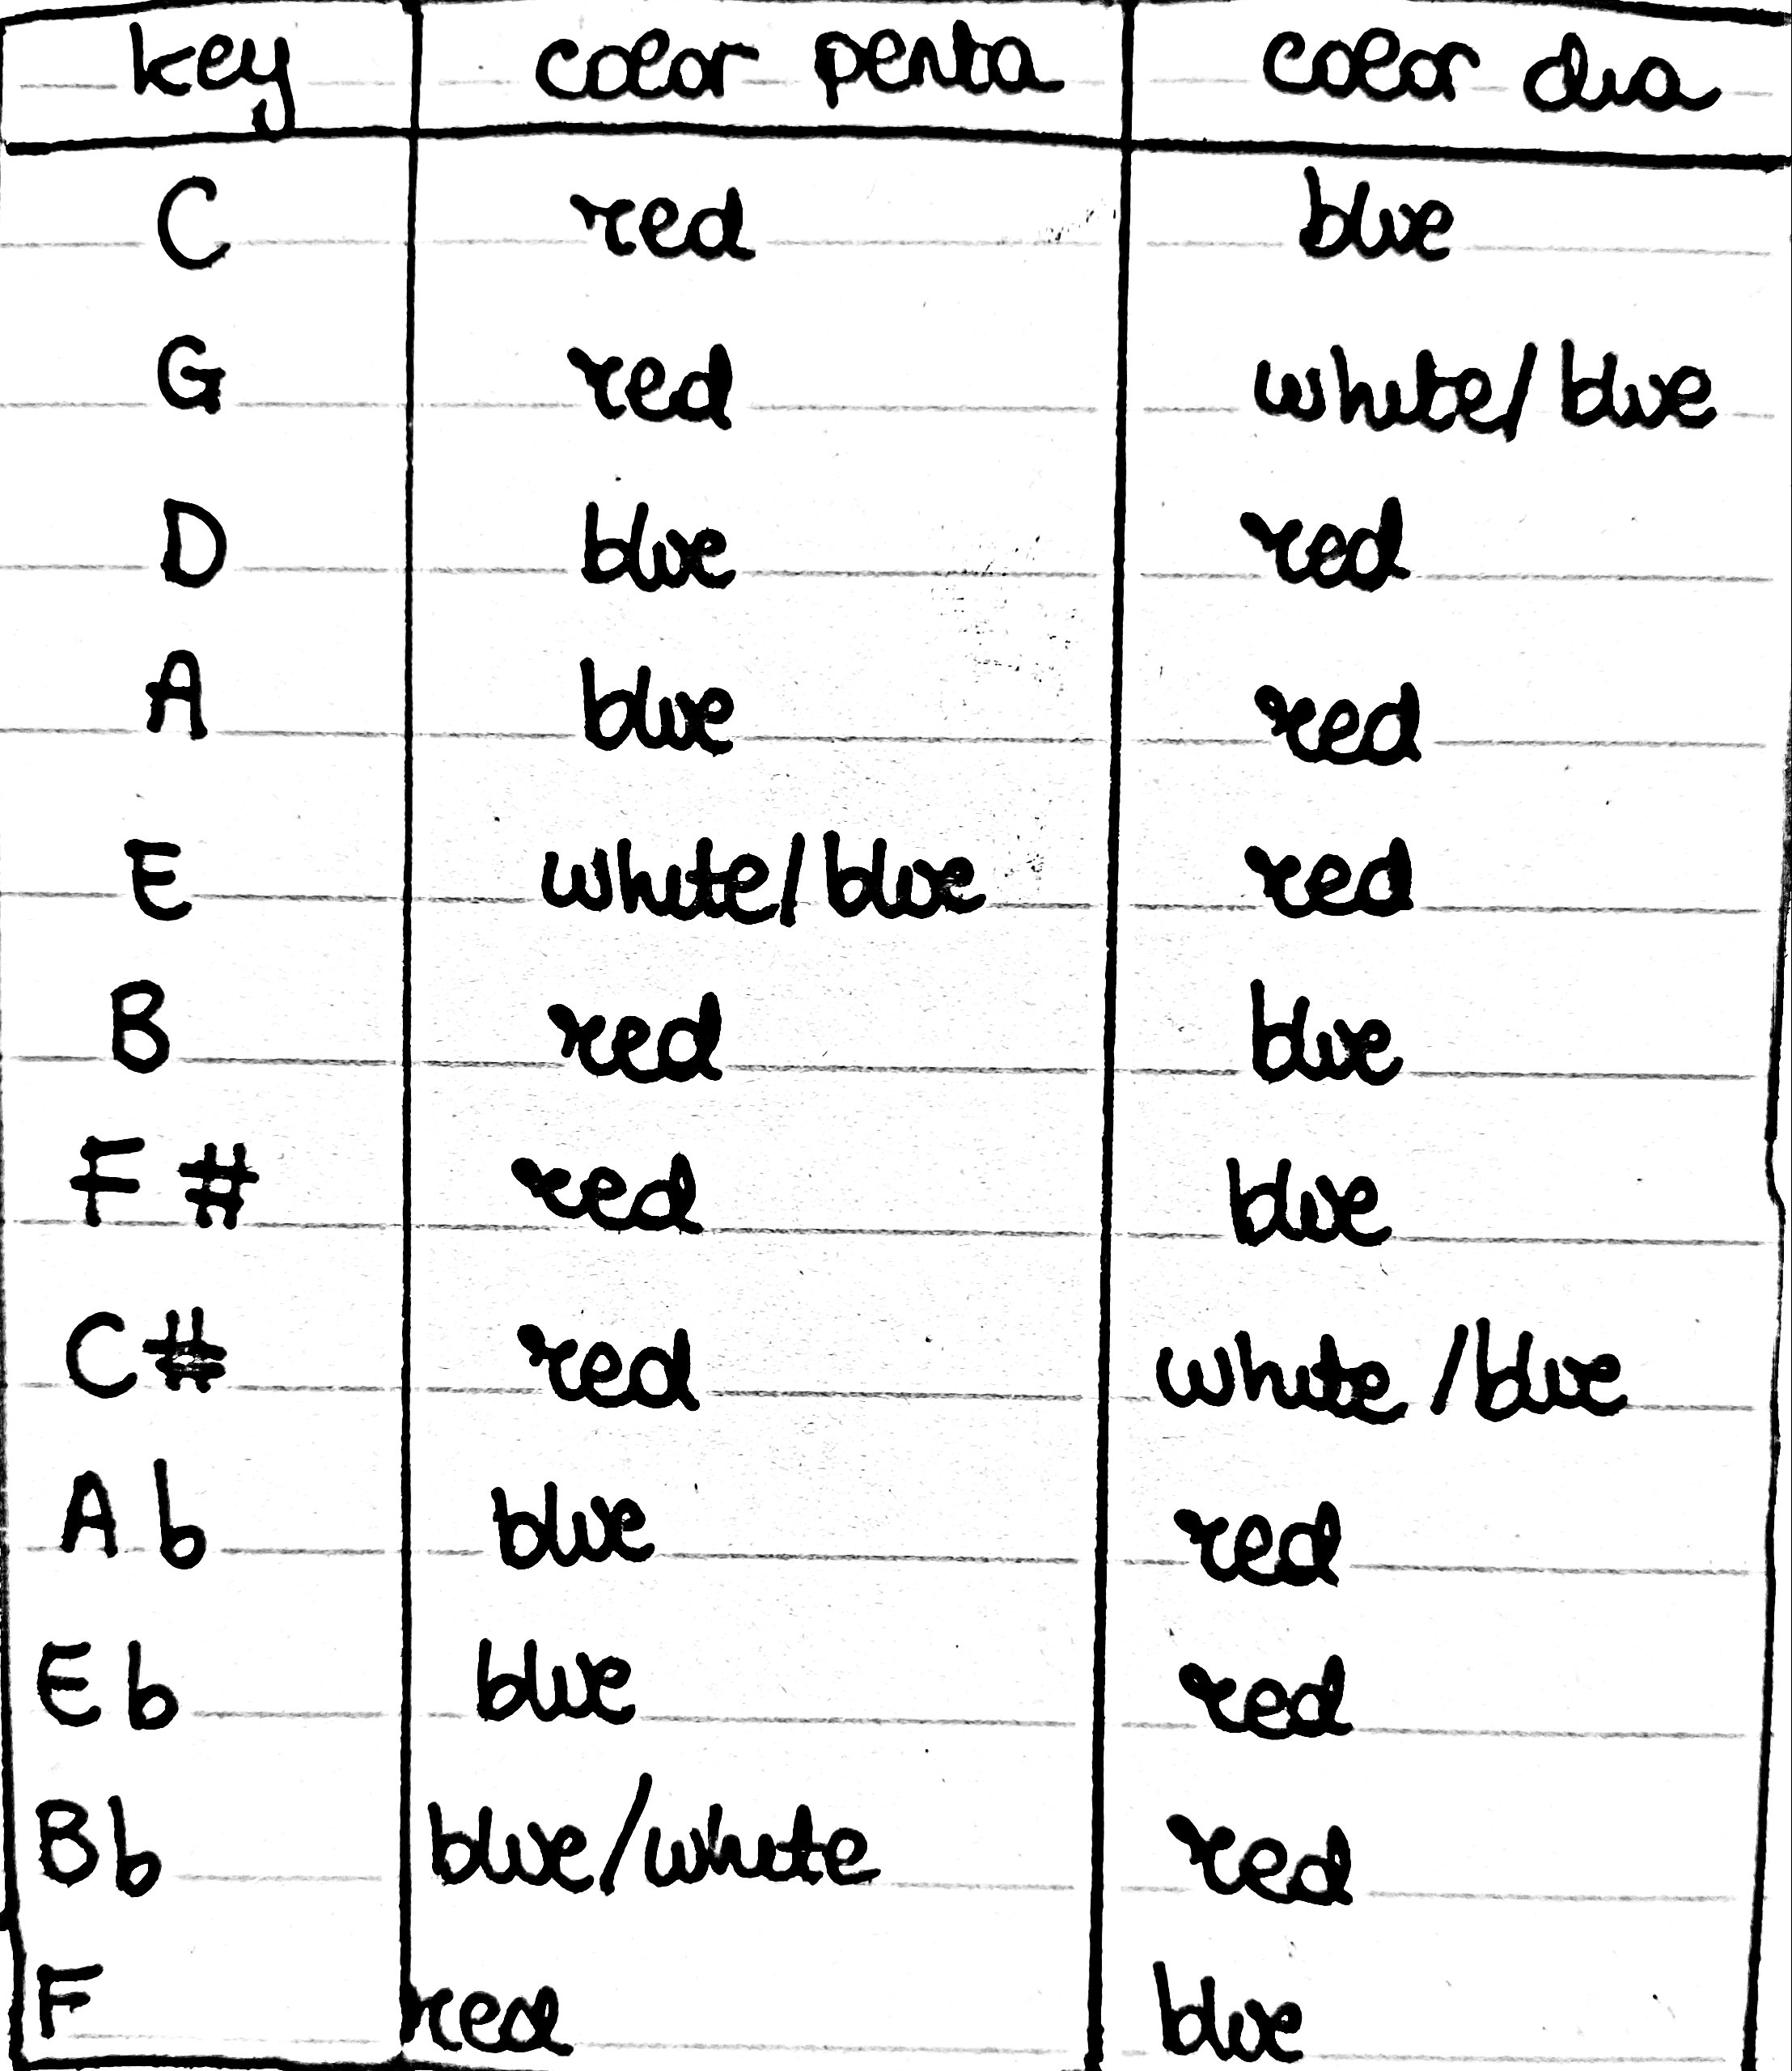 key color penta color dia
C red blue
G red white/blue
D blue red
A blue red
E white/blue red
B red blue
F# red blue
C# red white/blue
Ab blue red
Eb blue red
Bb blue/white red
F red blue